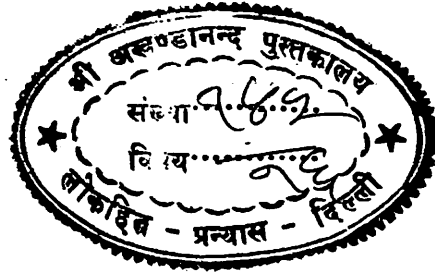 श्री अखण्डानन्द पुस्तकालय
संख्या
विषय
लोकहित - प्रन्यास - दिल्ली